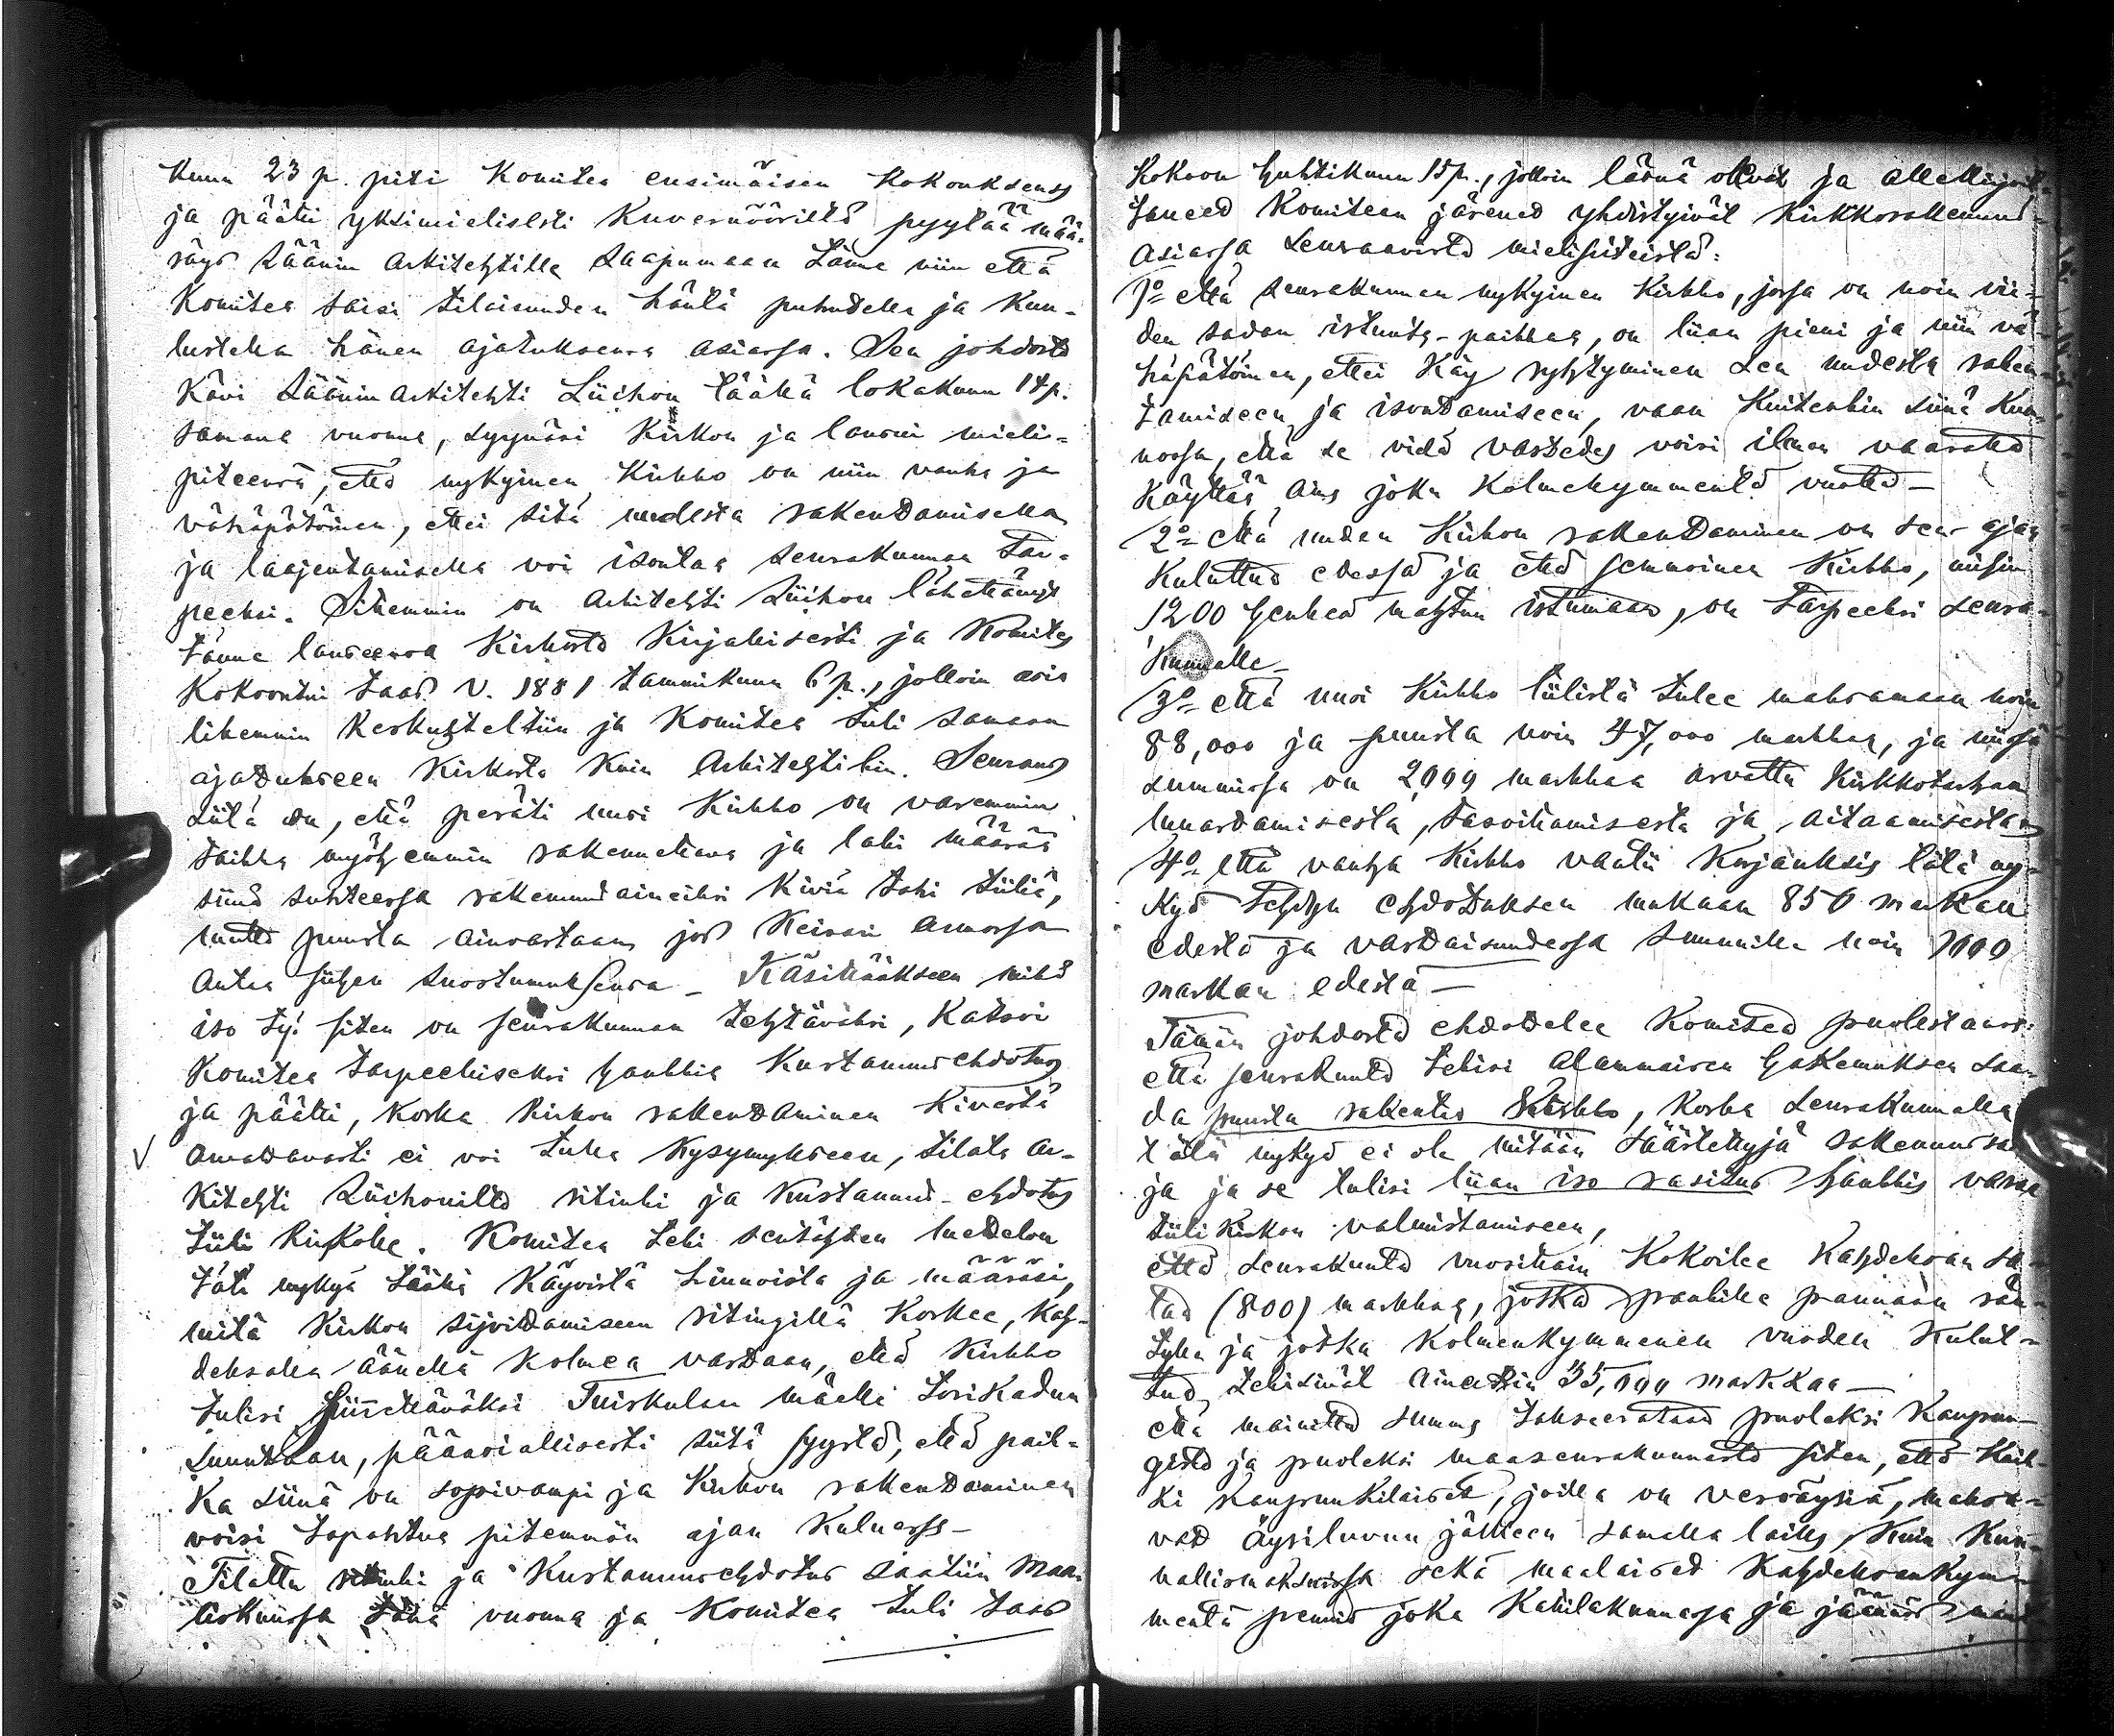 kuun 23 p. piti Komitea ensimäisen kokouksensa
ja päätti yksimielisesti Kuvernööriltä pyytää mää-
räys Läänin Arkitehtille saapumaan tänne niin että
Komitea saisi tilaisuuden häntä puhutella ja kuu-
lustella hänen ajatuksensa asiassa. Sen johdosta
kävi Läänin Arkitehti Lüchou täällä lokakuun 14 p.
samana vuonna, syynäsi Kirkon ja lausui mieli-
piteensä, että nykyinen Kirkko on niin vanha ja
vähäpätöinen, ettei sitä uudesta rakendamisella
ja laajentamisella voi isontaa seurakunnan tar-
peeksi. Sittemmin on Arkitehti Lüchou lähettänyt
tänne lauseensa Kirkosta Kirjallisesti ja Komitea
Kokoontui taas v. 1881 tammikuun 6 p., jolloin asia
likemmin Keskusteltiin ja Komitea tuli samaan
ajatukseen Kirkosta kuin Arkitehtikin. Seuraus
siitä on, että peräti uusi Kirkko on varemmin
taikka myöhemmin rakennettava ja laki määrää
siinä suhteessa rakennusaineiksi Kiviä taki tiiliä,
mutta puusta ainoastaan jos Keisari Armossa
antaa siihen suostumuksensa _ Käsittääkseen mikä
iso työ siten on seurakunnan tehtäväksi, Katsoi
Komitea tarpeelliseksi hankkia Kustannusehdotus
ja päätti, koska Kirkon rakendaminen Kivestä
V arvatavasti ei voi tulla Kysymykseen, tilata Ar-
kitehti Lüchoulta ritinki ja Kustannus-ehdotus
tiili Kirkolle. Komitea teki sentähden luettelon
tätä nykyä täällä Käyvistä hinnoista ja määräsi,
mitä Kirkon sijoittamiseen ritingillä Koskee, Kah-
deksalla äänellä Kolmea vastaan, että Kirkko
tulisi siirrettäväksi Tuiskulan mäelle Torikadun
suuntaan, pääasiallisesti siitä syystä, että paik-
ka siinä on sopivampi ja Kirkon rakendaminen
voisi tapahtua pitemmän ajan Kuluessa _
Tilattu ritinki ja Kustannusehdotus saatiin Maa-
liskuussa tänä vuonna ja Komitea tuli taas
Kokoon huhtikuun 15 p., jolloin läsnä olevat ja allekirjoit-
taneed Komitean jäsened yhdistyivät Kirkkorakennus-
asiassa seuraavista mielipiteistä:
1º että seurakunnan nykyinen Kirkko, jossa on noin vii-
den sadan istunta-paikkaa, on liian pieni ja niin vä-
häpätöinen, ettei Käy ryhtyminen sen uudesta raken-
tamiseen ja isondamiseen, vaan Kuitenkin siinä Kun-
nossa, että se vielä vastedes voisi ilman vaaratta
Käyttää aina joku Kolmekymmentä vuotta _
2º että uuden Kirkon rakendaminen on sen ajan
Kuluttua edessä ja että semmoinen Kirkko, niisin
1200 henkeä mahtuu istumaan, on tarpeeksi seura-
Kunnalle _
3º että uusi Kirkko tiilistä tulee maksamaan noin
88,000 ja puusta noin 47,000 markkaa, ja niissä
summissa on 2,000 markkaa arvattu Kirkkotarhan
muuttamisesta, tasoittamisesta ja aitaamisesta _
4º että vanha Kirkko vaatii Korjauksia tätä ny-
kyä tehdyn ehdotuksen mukaan 850 markan
edestä ja vastaisuudessa summilla noin 1000
markan edestä _
Tämän johdosta ehdottelee Komitea puolestaan:
että seurakunta tekisi alammaisen hakemuksen saa-
da puusta rakentaa Kirkko, koska seurakunnalla
tätä nykyä ei ole mitään säästettyjä rakennusra-
ja ja se tulisi liian iso rasitus hankkia varoja
tiili Kirkon valmistamiseen,
että seurakunta vuosittain Kokoilee Kahdeksan sa-
taa (800) markkaa, jotka pankille pannaan
ja jotka Kolmenkymmenen vuoden Kulut-
tua tekisivät ainakin 35,000 markkaa _
että mainittu summa takseerataan puoleksi Kaupun-
gista ja puoleksi maaseurakunnasta siten, että Kaik-
ki Kaupunkilaiset, joilla on veroäyriä, maksa-
vat äyriluvun jälkeen samalla lailla, kuin Kun-
nallismaksuissa sekä maalaiset Kahdeksankym-
mentä penniä joka Kahilakunnassa ja jäännös